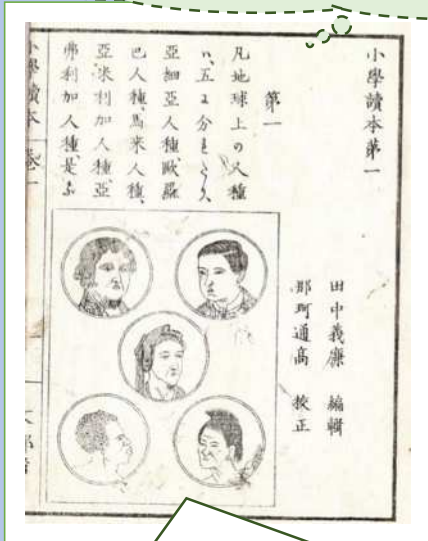 小學讀本第一
田中義廉 編輯
那珂通高 校正
第一
凡地球上の人種
ハ、五に分れたり、
亞細亞人種、歐羅
巴人種、馬来人種、
亞米利加人種、亞
弗利加人種、是な
小學讀本 卷一